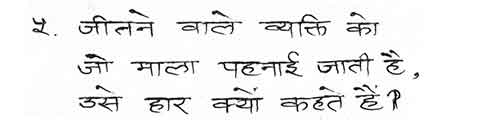 ५. जीतने वाले व्यक्ति को
जो माला पहनाई जाती है,
उसे हार क्यों कहते हैं?